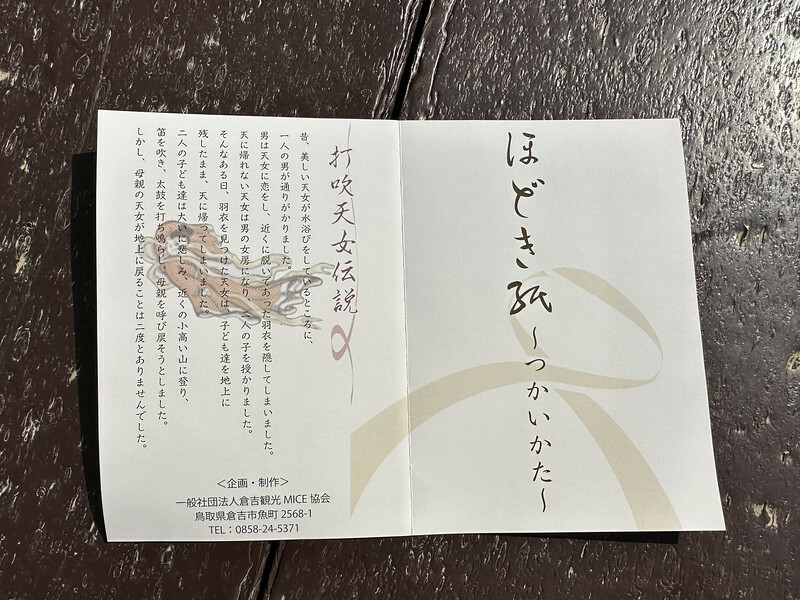 ほどき紙
～つかいかた～
打吹天女伝説
昔、美しい天女が水浴びをしているところに、
一人の男が通りがかりました。
男は天女に恋をし、近くに脱いであった羽衣を隠してしまいました。
天に帰れない天女は男の女房になり、二人の子を授かりました。
そんなある日、羽衣を見つけた天女は、子ども達を地上に
残したまま、天に帰ってしまいました。
二人の子ども達は大いに悲しみ、近くの小高い山に登り、
笛を吹き、太鼓を打ち鳴らし、母親を呼び戻そうとしました。
しかし、母親の天女が地上に戻ることは二度とありませんでした。
＜企画・制作＞
一般社団法人倉吉観光MICE協会
鳥取県倉吉市魚町2568-1
TEL：0858-24-5371